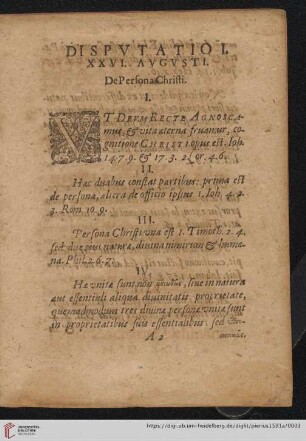 DISPVTATIO I.
XXVI. AVGVSTI.
De Persona Christi.
I.
VT DEVM RECTE AGNOSCA-
mus, & vita æterna fruamur, co-
gnitione CHRISTI opus est. Joh.
14.7.9. & 17.3. 2. Cor. 4.6.
II.
Hæc duabus constat partibus: prima est
de persona, altera de officio ipsius 1. Joh. 4. 2.
3. Rom. 10.9.
III.
Persona Christi vna est 1. Timoth. 2. 4.
sed duæ eius naturæ, divina nimirum & huma-
na. Phil. 2.6.7.
IV.
Hæ vnitæ sunt non siue in natura
aut essentiali aliqua diuinitatis proprietate,
quemadmodum tres diuinæ personæ vnitæ sunt
in proprietatibus suis essentialibus, sed
A 2
https://digi.ub.uni-heidelberg.de/diglit/pierius1591a/0003